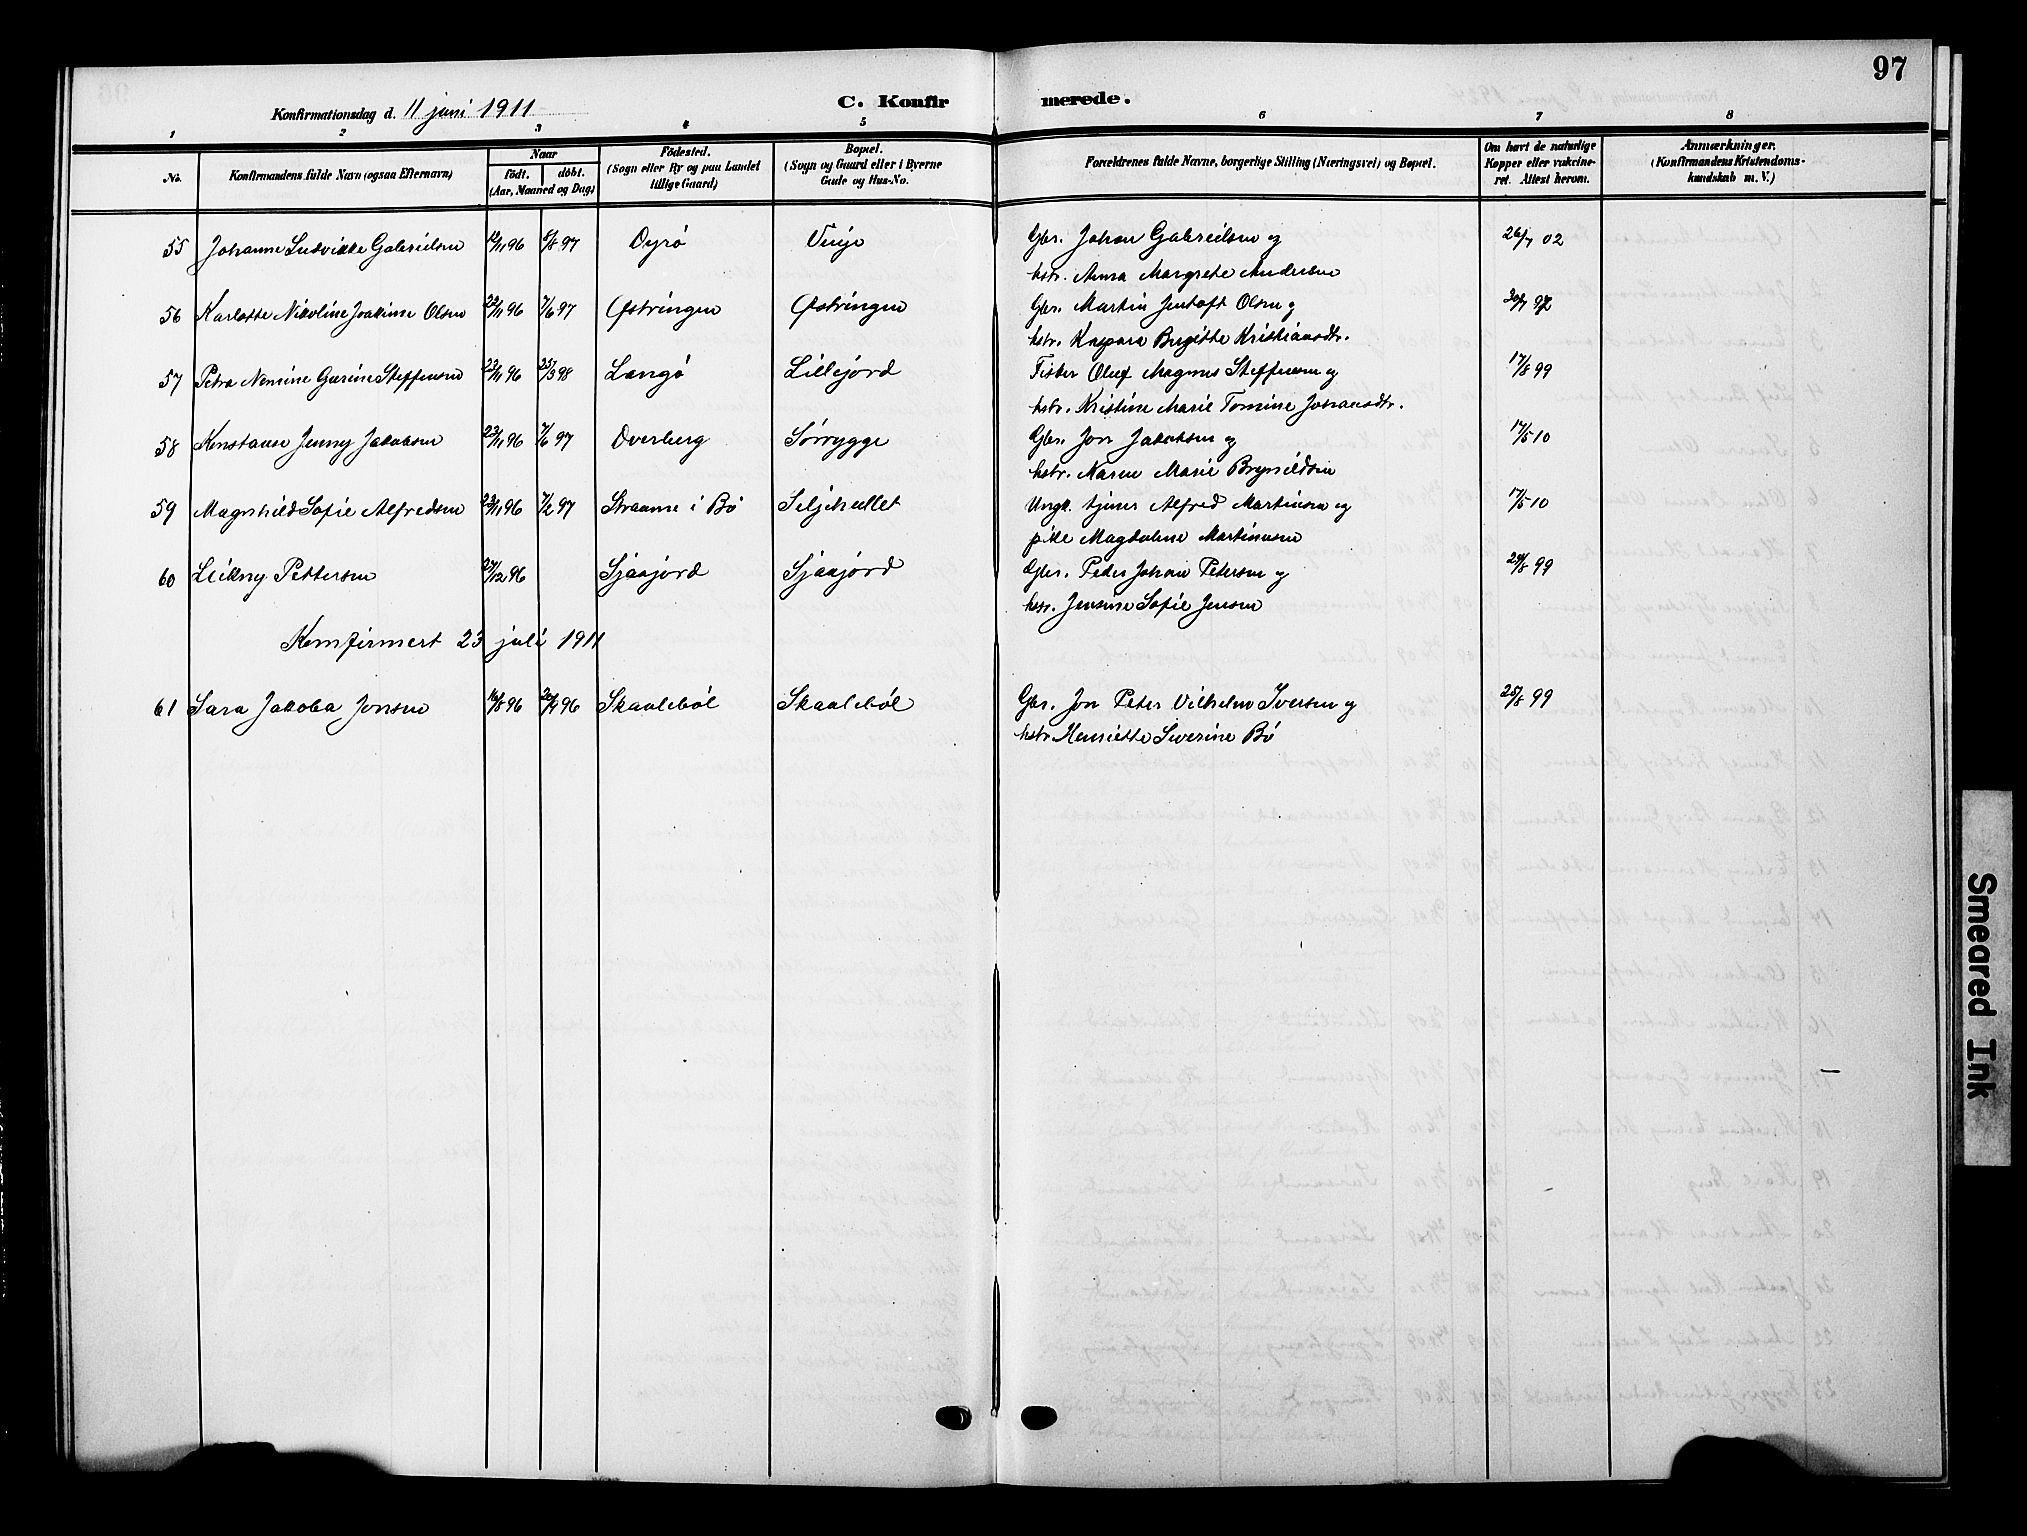 97
Konfirmationsdag d. 11 juni 1911
C. Konfirmerede.
1 2 3 4 5 6 7 8
No. Konfirmandens fulde Navn (ogsaa Efternavn) Naar födt. döbt. (Aar, Maaned og Dag) Födested. (Sogn eller By og paa Landet tillige Gaard) Bopæl. (Sogn og Gaard eller i Byerne Gade og Hus-No. Forældrenes fulde Navne, borgerlige Stilling (Næringsvei) og Bopæl. Om havt de naturlige Kopper eller vakcineret. Attest herom. Anmærkninger. (Konfirmandens Kristendomskundskab m. V.)
55 Johanne Ludvikke Gabrielsen 96 5/8 97 Dyrö Vinje Gbr. Johan Gabrielsen og 26/7 02
hstr. Anna Margrete Andersen
56 Karlotte Nikoline Joakime Olsen 22/11 96 7/6 97 Östringen Östringen Gbr. Martin Jentoft Olsen og
hstr. Kaspara Birgitte Kristiansdtr.
57 Petra Nensine Gurine Steffensen 23/11 96 25/3 98 Langö Lillejord Fisker Oluf Magnus Steffensen og 17/8 99
hstr. Kristine Marie Tomine Johansdtr.
58 Konstanse Jenny Jakobsen 23/11 96 7/6 97 Overberg Sörrygge Gbr. Jon Jakobsen og 17/5 10
hstr. Karen Marie Brynildsen
59 Magnhild Sofie Alfredsen 23/11 96 7/2 97 Straume i Bö Seljehullet Ungk. tjener Alfred Martinsen og 17/5 10
pike Magdalene Martinusen
60 Leikny Pettersen 27/12 96 Sjaajord Sjaajord Gbr. Peder Johan Petersen og 24/8 99
hstr. Jensine Sofie Jensen
Komfirmert 23 juli 1911
61 Sara Jakoba Jonsen 16/8 96 96 Skaaleböl Skaaleböl Gbr. Jon Peter Vilhelm Iversen og 25/8 99
hstr Henriette Severine Bö
Smeared Ink